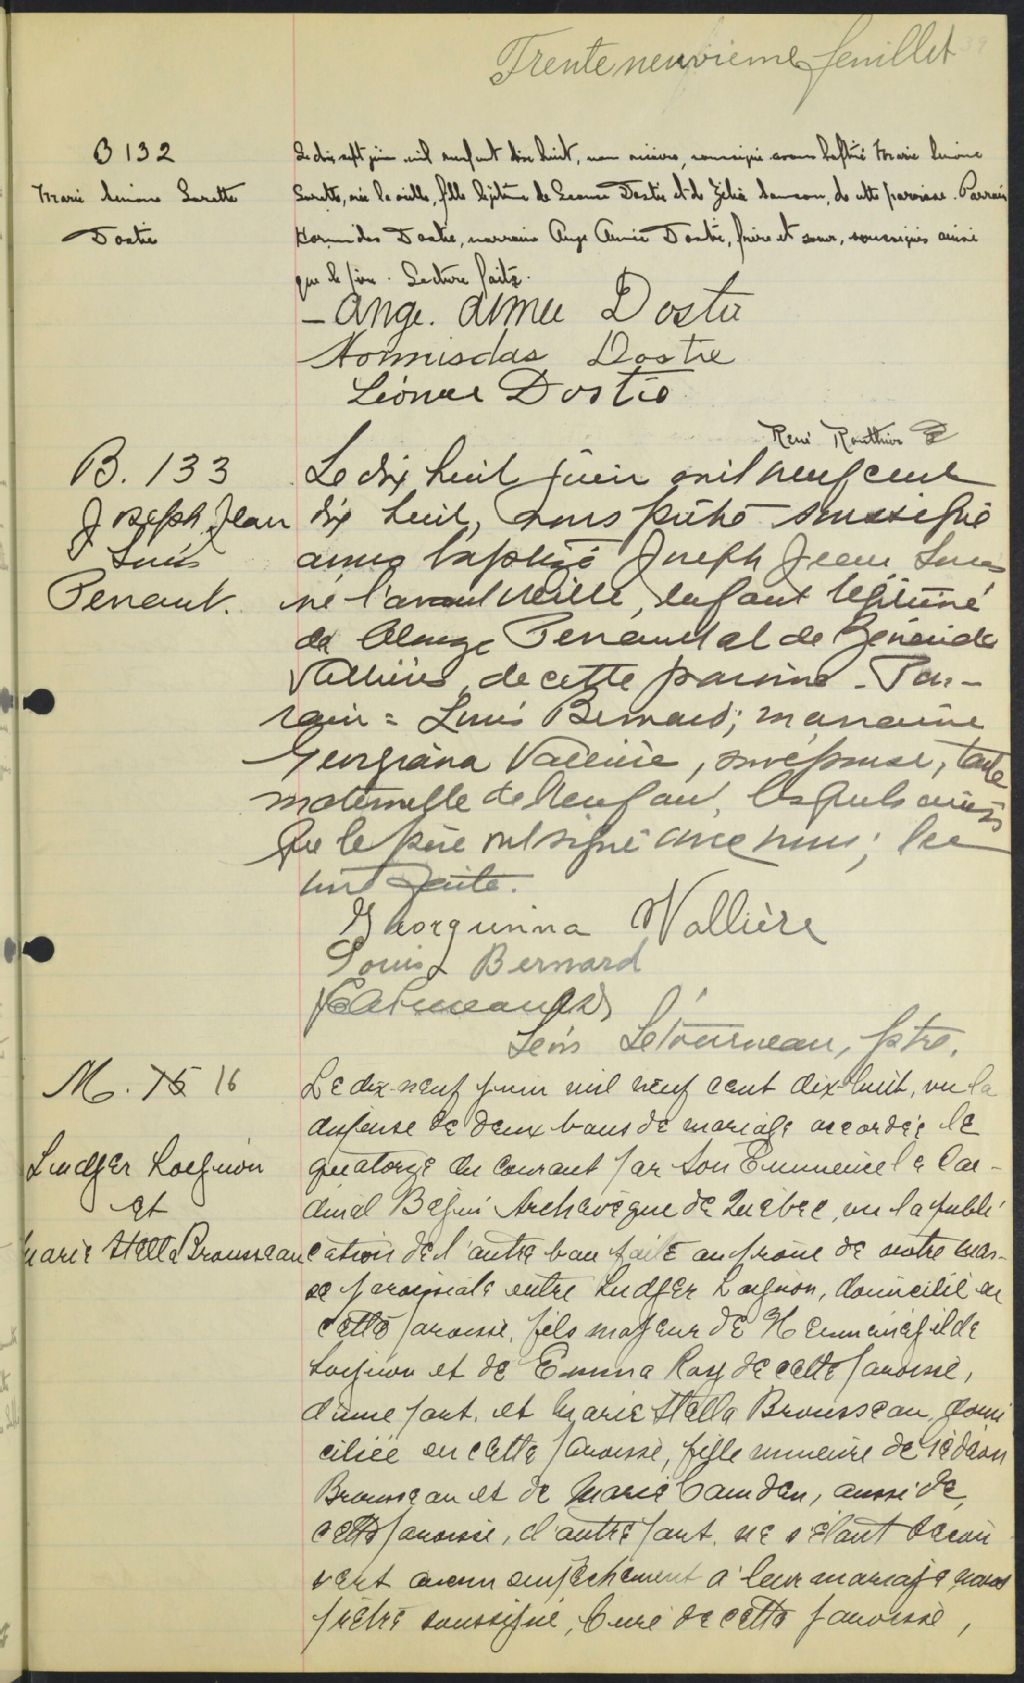 Trente neuvieme feuillet 39
B 132
Marie Simone Laurette
Dostie
Le dix sept juin mil neuf cent dix huit, nous vicaire, soussigné avons baptisé Marie Simone
Laurette, née la veille, fille légitime de Léonce Dostie et de Zélia Samson, de cette paroisse. Parrain
Hormisdas Dostie, marraine Ange Aimée Dostie, frère et sœur, soussignés ainsi
que le père. Lecture faite.
- Ange. Aimée Dostie
Hormisdas Dostie
Léonce Dostie
René Routhier
B. 133
Joseph Jean
Louis
Penaut.
Le dix huit juin mil neuf cent
dix huit, nous prêtre soussigné
avons baptisé Joseph Jean Louis
né l'avant veille, enfant légitime
de Penaud et de
Vallières, de cette paroisse. Par-
rain = Louis Bernard; marraine
Georgiana Vallière, son épouse, tante
maternelle de l'enfant, lesquels ainsi
que le père ont signé avec nous; lec
ture faite.
Georgianna Vallière
Louis Bernard
Létourneau, ptre.
M. 15 16
Ludger Loignon
et
Marie Stella Brousseau
Le dix-neuf juin mil neuf cent dix huit, vu la
dispense de deux bans de mariage accordée le
quatorze du courant par Son Eminence le Car-
dinal Bégin Archevêque de Québec, vu la publi
cation de l'autre ban faite au prône de notre mes-
se paroissiale entre Ludger Loignon, domicilié en
cette paroisse, fils majeur de Herménégilde
Loignon et de Emma Roy de cette paroisse,
d'une part, et Marie Stella Brousseau, domi
ciliée en cette paroisse, fille mineure de Gédéon
Brousseau et de Marie Camden, aussi de
cette paroisse, d'autre part, ne s'étant décou
vert aucun empêchement à leur mariage, nous
prêtre soussigné, Curé de cette paroisse,